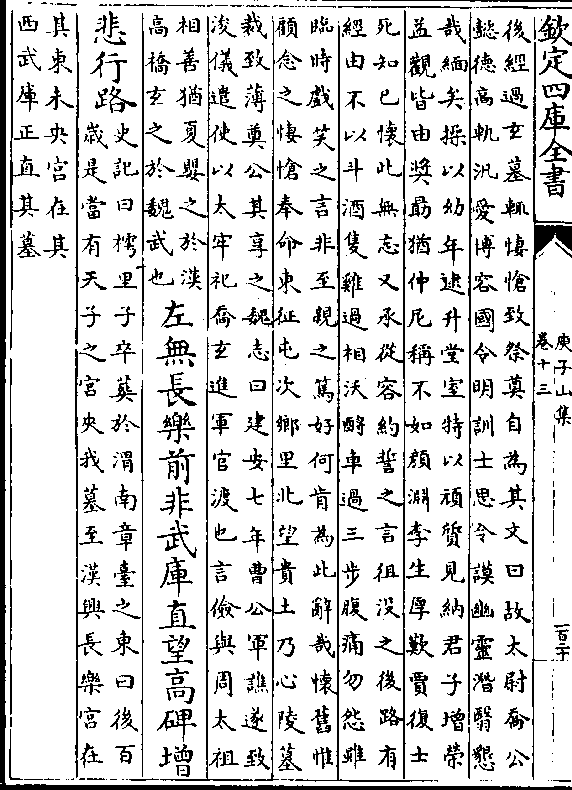 欽定四庫全書
庾子山集
卷十三
後經過玄墓輒悽愴致祭奠自為其文曰故太尉喬公
懿德高軌汎愛博容國念明訓士思令謨幽靈潛翳懇
哉緬矣操以幼年逮升堂室特以頑質見納君子增榮
益觀皆由奬勗猶仲尼稱不如顔淵李生厚歎賈復士
死知已懷此無忘又承從容約誓之言徂没之後路有
經由不以斗酒隻雞過相沃酹車過三步腹痛勿怨雖
臨時戲笑之言非至親之篤好何肯為此辭哉懷舊惟
顧念之悽愴奉命東征屯次鄉里北望貴土乃心陵墓
裁致薄奠公其享之魏志曰建安七年曹公軍譙遂致
浚儀遣使以太牢祀喬玄進軍官渡也言儉與周太祖
相善猶夏嬰之於漢
高橋玄之於魏武也
左無長樂前非武庫直望高碑增
悲行路
史記曰樗里子卒葬於渭南章臺之東曰後百
歲是當有天子之宮夾我墓至漢興長樂宮在
其東未央宮在其
西武庫正直其墓